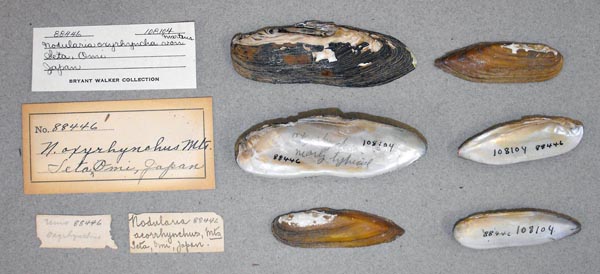 88446 108104
Nodularia oxyrhyncha von
Martens
Seta, Omi
Japan
BRYANT WALKER COLLECTION
No. 88446
N. oxyrhynchus Mts.
Seta, Omi, Japan
Unio 88446
oxyrhynchus
Nodularia 88446
acorrhynchus, Mts
Seta, Omi, Japan.
108104
88446
nearly typical
108104 88446
88446 108104